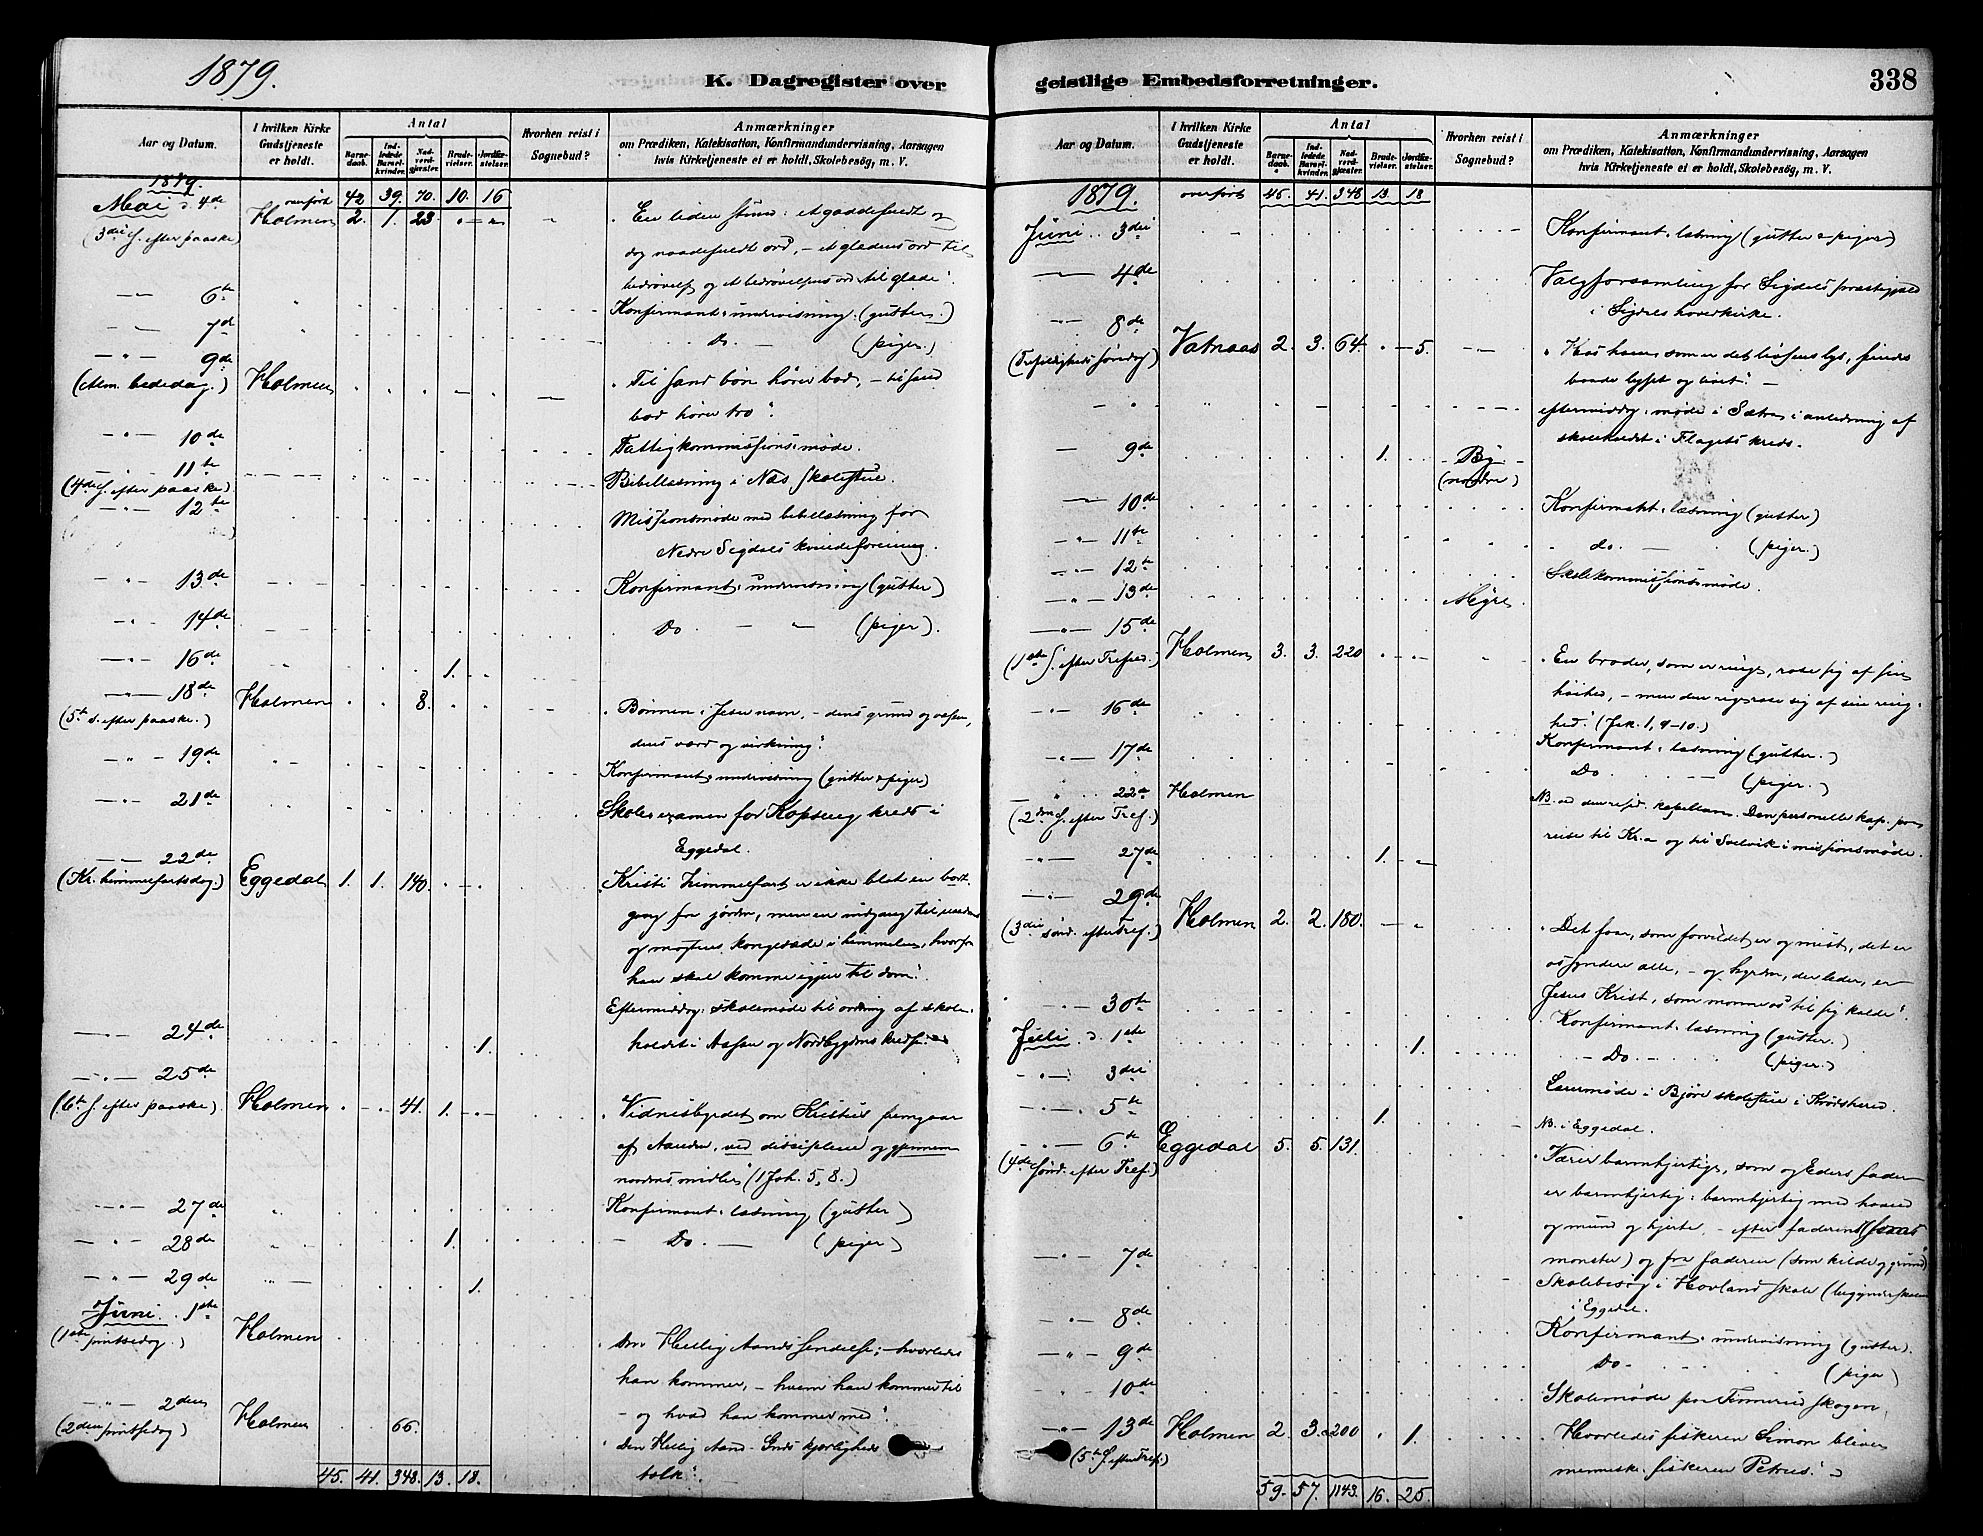 1879.
K. Dagregister over
Aar og Datum.
I hvilken Kirke Gudstjeneste er holdt.
Antal
Barnedaab.
Indledede Barnelkvinder.
Nadverdgjæster.
Brudevielser.
Jordfæstelser.
Hvorhen reist i Sognebud?
Anmærkninger
om Prædiken, Katekisation, Konfirmandundervisning, Aarsagen
hvis Kirketjeneste ei er holdt, Skolebesög, m. V.
1879. overført 42 39. 70. 10. 16
Mai d. 4de Holmen 2. 1. 23. En liden stund: et
(3die S. efter paaske) dog naadefuldt ord, - et glædens ord til
bedrøvede og et bedrøvelsens ord til glade".
6te Konfirmant-undervisning (gutter.)
7de Do. (piger.)
9de
(Alm. bededag.) Holmen "Til sand bøn hører bod, - til sand
bod hører tro".
10de Fattigkommissionsmøde.
11te
(4de S. efter paaske) Bibellæsning i Næs skolestue.
12te Missionsmøde med bibellæsning for
Nedre Sigdals kvindeforening.
13de Konfirmant-undervisning (gutter)
14de Do (piger).
16de 1.
18de Holmen 8. "Bønnen i Jesu navn, - dens grund og væsen,
(5te S. efter paaske.) dens værd og virkning".
19de Konfirmant-undervisning (gutter & piger)
21de Skoleexamen for Kopseng kreds i
Eggedal.
22de
(Kr. himmelfartsdag) Eggedal 1. 1. 140. "Kristi himmelfart er ikke blot en bort-
gang fra jorden, men en indgang til
og magtens kongesæde i himmelen, hvorfra
han skal komme igjen til dom".
Eftermiddag: skolemøde til ordning af skole-
24de 1. holdet i Aasan og Nordbygdens kredse.
25de
(6te S. efter paaske) Holmen 41. 1. "Vidnesbyrdet om Kristus fremgaar
af Aanden, ved disciplene og gjennem
naadens midler" (1 Joh. 5, 8.)
27de Konfirmant-læsning (gutter)
28de 1. Do (piger)
29de 1.
Juni 1ste Holmen "Den Hellig Aands sendelse; - hvorledes
(1ste pintsedag.) han kommer, - hvem han kommer til
- og hvad han kommer med".
2den Holmen 66. "Den Hellig Aand - Guds kjærligheds
(2den pintsedag) tolk".
45. 41. 348. 13. 18.
geistlige Embedsforretninger.
338
Aar og Datum.
I hvilken Kirke Gudstjeneste er holdt.
Antal
Barnedaab.
Indledede Barnelkvinder.
Nadverdgjæster.
Brudevielser.
Jordfæstelser.
Hvorhen reist i Sognebud?
Anmærkninger
om Prædiken, Katekisation, Konfirmandundervisning, Aarsagen
hvis Kirketjeneste ei er holdt, Skolebesög, m. V.
1879. overført 45. 41. 348 13. 18
Juni 3die Konfirmant-læsning (gutter & piger)
4de Valgforsamling for Sigdals præstegjæld
i Sigdals hovedkirke.
8de Vatnaas 2. 3. 64. 5. "Hos ham, som er det lys, findes
(Trefoldigheds søndag) baade lyset og livet". -
eftermiddag: møde i Sætra i anledning af
skoleholdet i Flagets kreds.
9de 1. By
(nordre)
10de Konfirmant-læsning (gutter)
11te do. (piger.)
12te Skolekommissionsmøde.
13de Myre
15de Holmen 3. 3. 220 "En broder, som er ringe, rose sig af sin
(1ste S. efter Trefold.) høihed, - men den rige rose sig af sin ring-
16de hed". (Jak. 1, 9-10.)
Konfirmant-læsning (gutter.)
17de Do. (piger.)
22de Holmen NB. ved den resid. kapellan. Den personelle kap. paa
(2den S. efter Tref.) reise til Kr.a og til Svelvik i missionsmøde.
27de 1.
29de Holmen 2. 2. 180. "Det faar, som forvildet er og mist, det er
(3die sønd. efter Tref.) os syndere alle, - og hyrden, der leder, er
30te Jesus Krist, som monne os til sig kalde".
Konfirmant-læsning (gutter.)
Juli d. 1ste 1. Do. (piger.)
3die Læremøde i Bjøre skolestue i Krødshered.
5te 1. NB. i Eggedal.
6te Eggedal 5. 5. 131. "Værer barmhjertige, som og Eders fader
(4de sønd. efter Tref.) er barmhjertig: barmhjertig med haand
og mund og hjerte, - efter faderen
7de mønster) og fra faderen (som kilde og grund)"
Skolebesøg i Hovland skole (begynderskolen
i Eggedal.
8de Konfirmant-undervisning (gutter).
9de Do- (piger)
10de Skolemøde paa skogen
13de Holmen 2. 3. 200 1. "Hvorledes fiskeren Simon bliver
(5te S. efter Tref.) menneske-fiskeren Petrus".
59. 57. 1143. 16. 25.